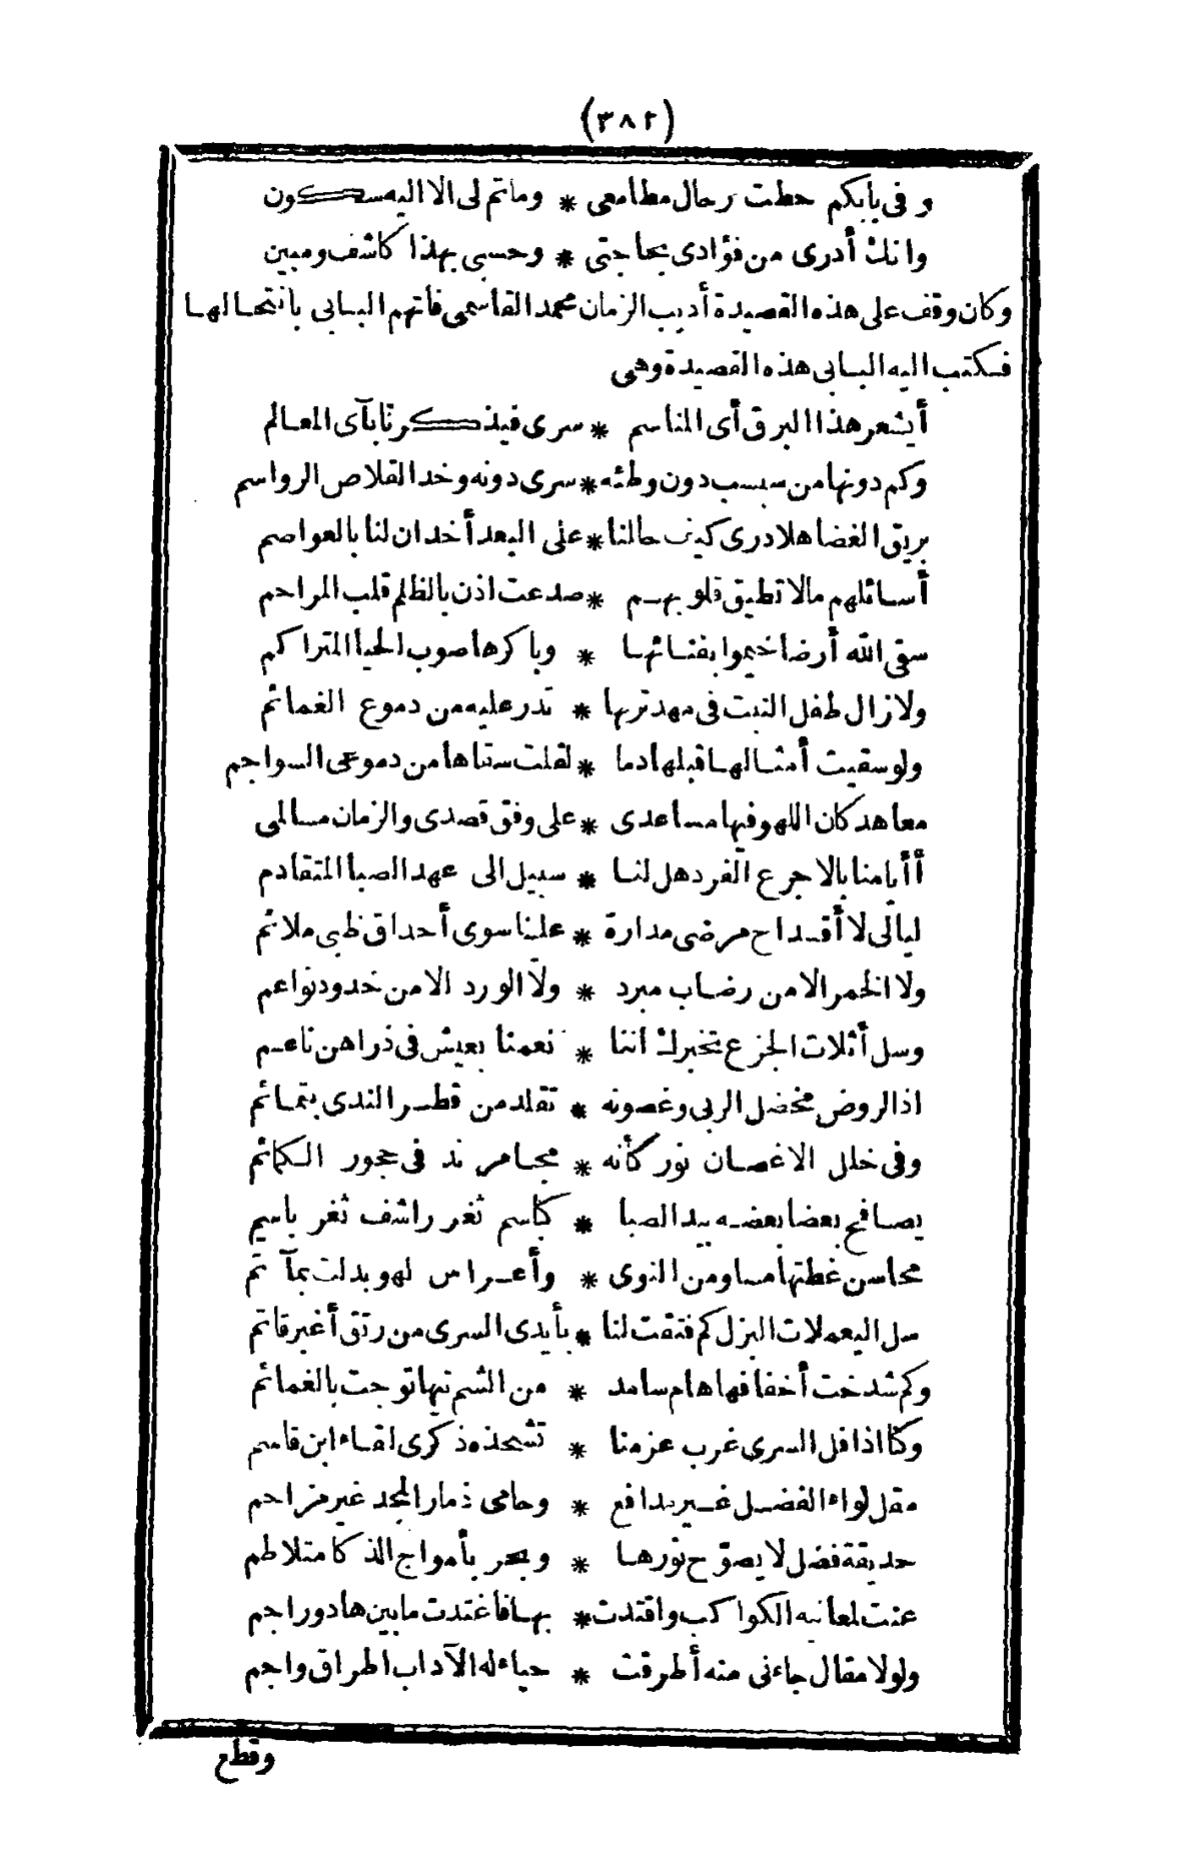 (٣٨٢)
وفى بابكم حطت رحال مطامعى * وما تم لى الا اليه سكون
وانك أدرى من فؤادى بحاجتى * وحسبى بهذا كاشف ومبين
وكان وقف على هذه القصيدة أديب الزمان محمد القاسمى فاتهم البابى بانتحالها
فكتب اليه البابى هذه القصيدة وهى
أيشعر هذا البرق أى المناسم * سرى فيذكرنا بآى المعالم
وكم دونها من سبسب دون وطئه * سرى دونه وخد القلاص الرواسم
بريق الغضا هلا درى كيف حالنا * على البعد أخدان لنا بالعواصم
أسائلهم مالا تطيق قلوبهم * صدعت اذن بالظلم قلب المراحم
سقى الله أرضا خيموا بفنائها * وباكرها صوب الحيا المتراكم
ولازال طفل النبت فى مهد تربها * تدر عليه من دموع الغمائم
ولو سقيت أمثالها قبلها دما * لقلت سقاها من دموعى السواجم
معاهد كان اللهو فيها مساعدى * على وفق قصدى والزمان مسالمى
أأيامنا بالاجرع الفرد هل لنا * سبيل الى عهد الصبا المتقادم
ليالى لا أقداح مرضى مدارة * علينا سوى أحداق ظبى ملائم
ولا الخمر الا من رضاب مبرد * ولا الورد الا من خدود نواعم
وسل أثلات الجزع تخبرك اننا * نعمنا بعيش فى ذراهن ناعم
اذ الروض مخضل الربى وغصونه * تقلد من قطر الندى بتمائم
وفى خلل الاغصان نور كأنه * مجامر ند فى حجور الكمائم
يصافح بعضا بعضه بيد الصبا * كباسم ثغر راشف ثغر باسم
محاسن غطتها مساو من النوى * وأعراس لهو بدلت بمآتم
سل اليعملات البزل كم فتقت لنا * بأيدى السرى من رتق أغبر قاتم
وكم شدخت أخفافها هام سامد * من الشم تيها توجت بالغمائم
وكنا اذا فل السرى غرب عزمنا * تشحذه ذكرى لقاء ابن قاسم
مقل لواء الفضل غير مدافع * وحامى ذمار المجد غير مزاحم
حديقة فضل لا يصوّح نورها * وبحر بأمواج الذكا متلاطم
عنت لمعانيه الكواكب واقتدت * بها فاغتدت مابين هاد وراجم
ولولا مقال جاءنى منه أطرقت * حياء له الآداب اطراق واجم
وقطع